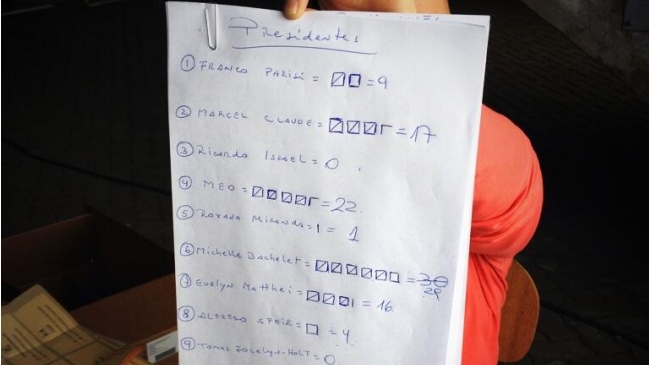 Presidentes
① FRANCO PARISI = = 9
② MARCEL CLAUDE = = 17
③ Ricardo Israel = 0
④ MEO = = 22
⑤ Roxana Miranda = = 1
⑥ Michelle Bachelet = = 30
29
⑦ Evelyn Matthei = = 16
⑧ ALFREDO SFEIR = = 4
⑨ Tomas Jocelyn-Holt = 0